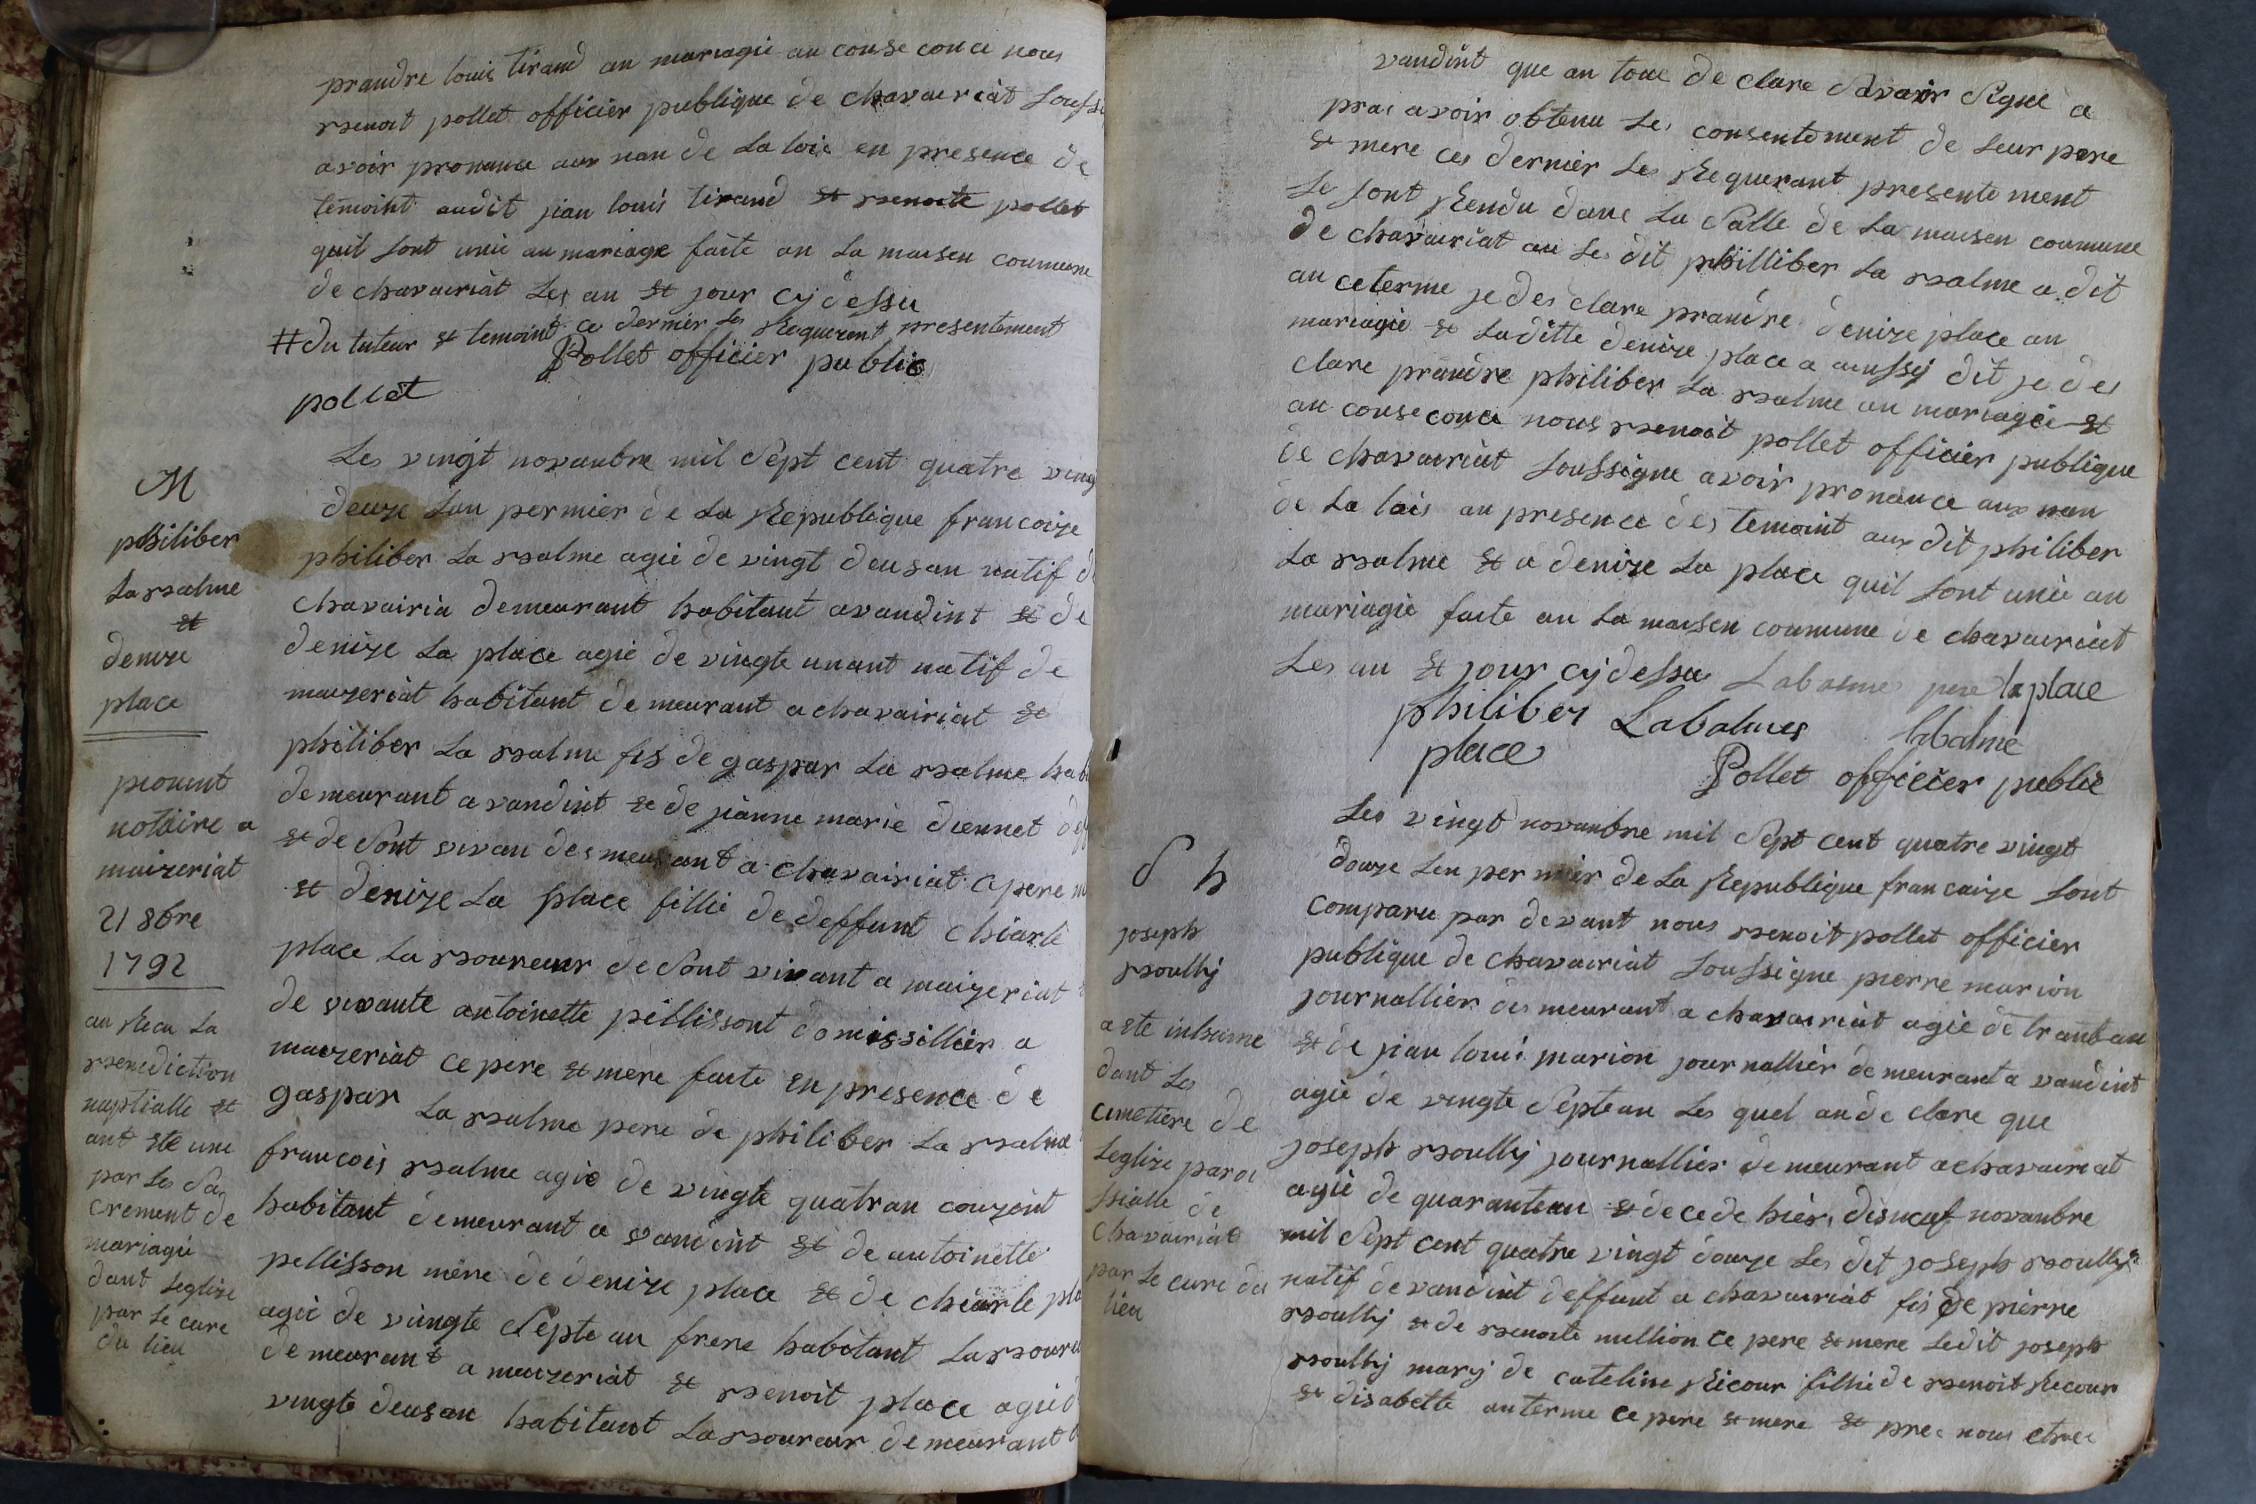 prandre louis tirand an mariagie au conse conci nous
rsenoit pollet officier publique de chavaeriat souss
avoir pronance aux nan de La loie en presence de
temoint audit jian louis tirand et rsenoite pollet
quil sont unie au mariage faite an La maisen coumune
de chavairiat Les an et jour cy dessu
# du tuteur et temoint ce dernier Les Requerent presentement
Pollet officier public
pollet
M
philiber
La rsalme
et
denize
place
prouint
notaire a
maizeriat
21 8bre
1792
au Recu La
rsenediction
nuptialle et
ant ete unie
par Les Sa
crement de
mariagie
dant Leglize
par Le cure
du lieu
Les vingt novanbre mil Sept cent quatre ving
deuze Lan permier de La Republique francaize
philiber La rsalme agie de vingt deusan natif d
Chavairia demeurant habitant avandint et de
denize La place agie de vingte unant natif de
maizeriat habitant demeurant a chavairiat et
philiber La rsalme fis de gaspar La rsalme hab
demeurant a vandint et de jianne marie diennet def
et de Sont vivan desmeurant a chavairiat cpere m
et denize La place fillie de deffunt chiarle
place La rsoureur de Sont vivant a maizeriat
de vivante antoinette pellissont domissillier a
maizeriat ce pere et mere faite en presence de
gaspar La rsalme pere de philiber La rsalme
francois rsalme agie de vingte quatran couzint
habitant demeurant a vandint et de antoinette
pellisson mere de denize place et de chiarle pla
agie de vingte Septe an frere habitant La rsoure
demeurant a maizeriat et rsenoit place agie d
vingte deusan habitant La rsoureur demeurant a
vandint que an toue de clare Savair Signe a
prai avoir obtenu Les consentement de Leur pere
et mere ces dernier Les Requerant presente ment
Se sont Rendu dane La Salle de La maisen coumune
de chavairiat au Les dit philliber La rsalme a dit
an ceterme je des clare prandre denize place an
mariagie et Laditte denize place a aussy dit je des
clare prandre philiber La rsalme an mariagie et
an conse conci nous rsenoit pollet officier publique
de chavairiat soussigne avoir pronance aux nan
de La lois an presence des temoint aux dit philiber
La rsalme et a denize La place quil sont unie an
mariagie faite an La maisen coumune de chavairiat
Les an et jour cy dessu Labalme pere la place
philiber Labalmes labalme
place
Pollet officier public
S h
joseph
rsoully
a ete inhume
dant Les
cimetiere de
Leglize paroi
ssialle de
Chavairiat
par Le cure du
lieu
Les vingt novanbre mil Sept cent quatre vingt
douze Len permier de La Republique francaize sont
comparu par devant nous rsenoit pollet officier
publique de chavairiat soussigne pierre marion
journallier desmeurant a chavairiat agie de trantean
et de jian louis marion journallier demeurant a vandint
agie de vingte Septe an Les quel an de clare que
joseph rsoully journallier demeurant a chavairiat
agie de quarantean et decede hier disneuf novanbre
mil Sept cent quatre vingt douze Les dit joseph rsoully
natif de vandint deffunt a chavairiat fis de pierre
rsoully et de rsenoite million ce pere et mere Ledit joseph
rsoully mary de cateline Ricour fillie de rsenoit Recour
et disabette anterme ce pere et mere et pres nous etrec